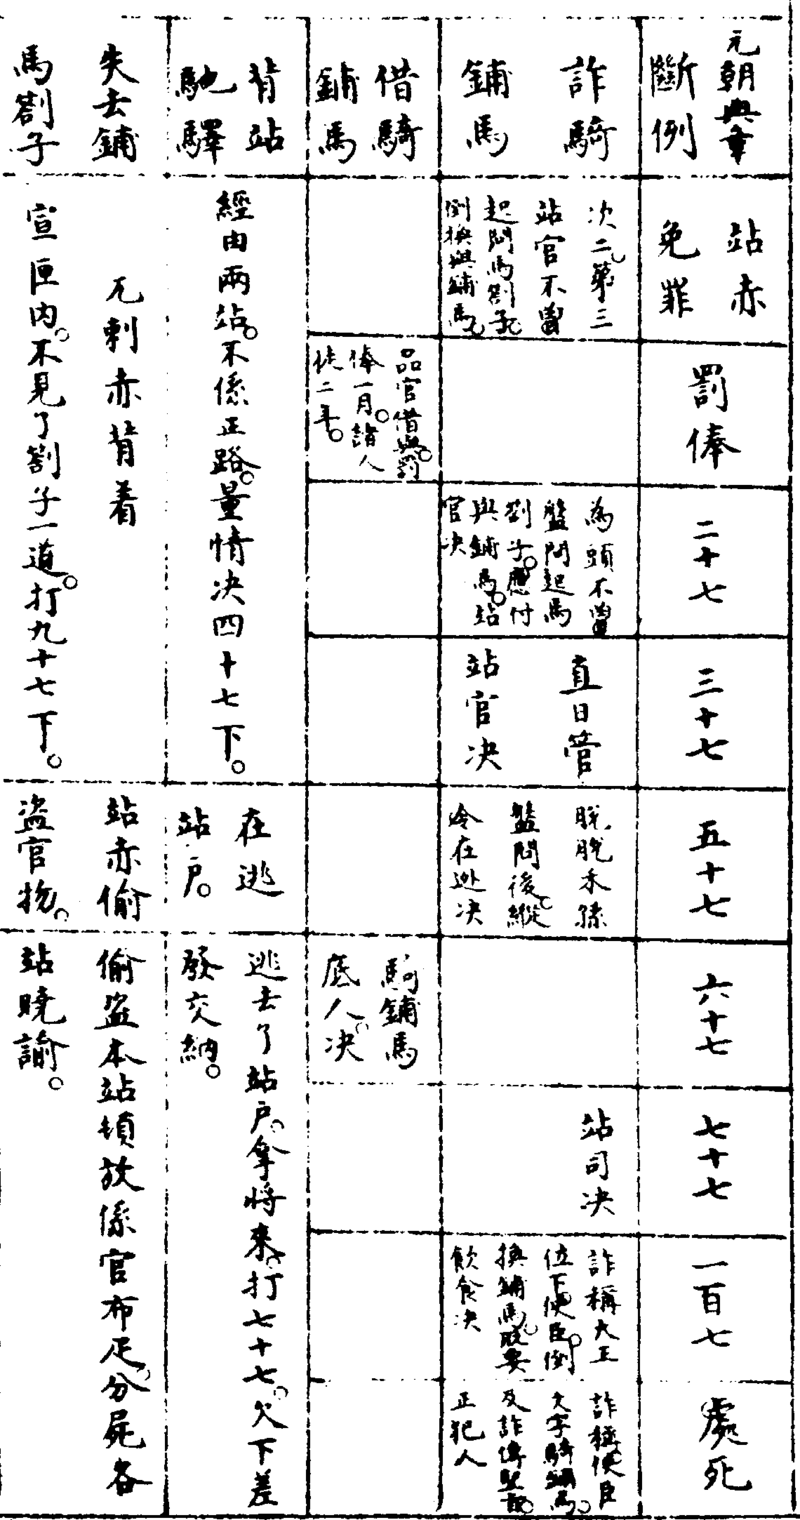 元朝典章
斷例
站赤
免罪
罰俸
二十七
三十七
五十七
六十七
七十七
一百七
處死
詐騎
鋪馬
次二。第三
站官不曾
起問馬劄子。
倒換與鋪馬。
為頭不曾
盤問起馬
劄子。應付
與鋪馬。站
官决
直日管
站官决
脫脫禾孫
盤問後。縱
令在逃决
站司决
詐稱大王
位下使臣。倒
換鋪馬。取要
飲食决
詐稱使臣
文字騎鋪馬。
及詐傳聖旨。
正犯人
借騎
鋪馬
品官借與。罰
俸一月。諸人
徒二年。
騎鋪馬
底人。决
背站
馳驛
經由兩站。不係正路。量情决四十七下。
在逃
站戶。
逃去了站戶。拿將來。打七十七。欠下差
發交納。
失去鋪
馬劄子
兀剌赤背着
宣匣内。不見了劄子一道。打九十七下。
站赤偷
盜官物。
偷盜本站頓放係官布疋。分屍各
站曉諭。